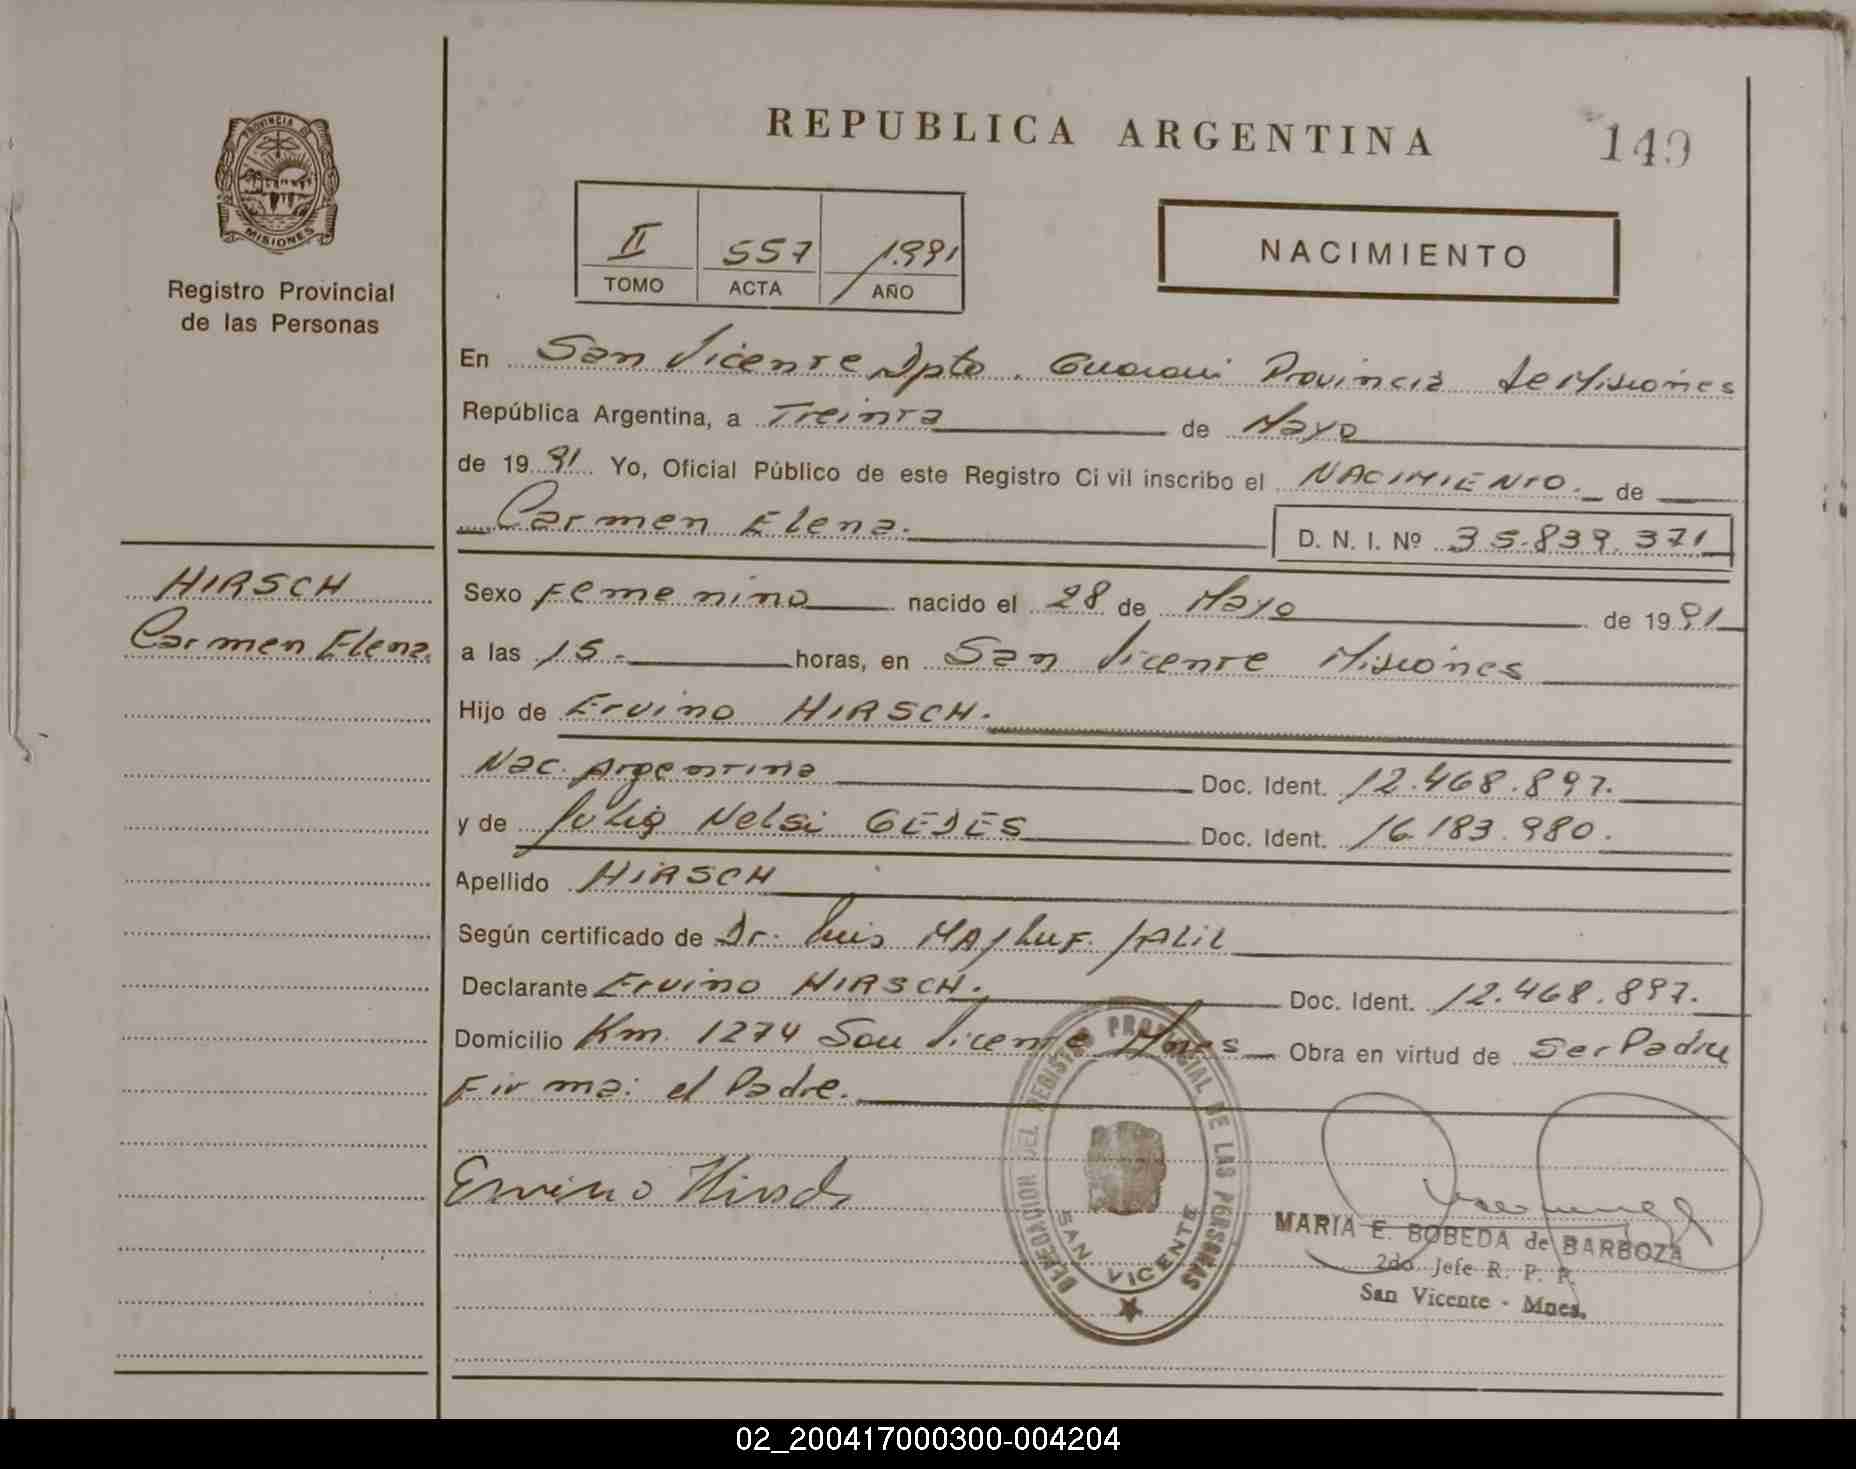 REPUBLICA ARGENTINA
149
PROVINCIA DE
MISIONES
Registro Provincial
de las Personas
II 557 1991
TOMO ACTA AÑO
NACIMIENTO
En San Vicente Dpto. Guarani Provincia de Misiones
República Argentina, a Treinta de Mayo
de 1991 Yo, Oficial Público de este Registro Civil inscribo el NACIMIENTO. de
Carmen Elena. D. N. I. Nº 35.839.371
HIRSCH
Carmen Elena.
Sexo Femenino nacido el 28 de Mayo de 1991
a las 15.- horas, en San Vicente Misiones
Hijo de Ervino HIRSCH.
Nac. Argentina Doc. Ident. 12.468.897.
y de Julia Nelsi GEDES Doc. Ident. 16.183.980.
Apellido HIRSCH
Según certificado de Dr. Luis MAJLUF JALIL
Declarante Ervino HIRSCH. Doc. Ident. 12.468.897.
Domicilio Km. 1274 San Vicente Mnes Obra en virtud de Ser Padre
Firma: el Padre.
Ervino Hirsch
DELEGACION DEL REGISTRO PROVINCIAL DE LAS PERSONAS
SAN VICENTE
MARIA E. BOBEDA de BARBOZA
2do. Jefe R. P. P.
San Vicente - Mnes.
02_200417000300-004204